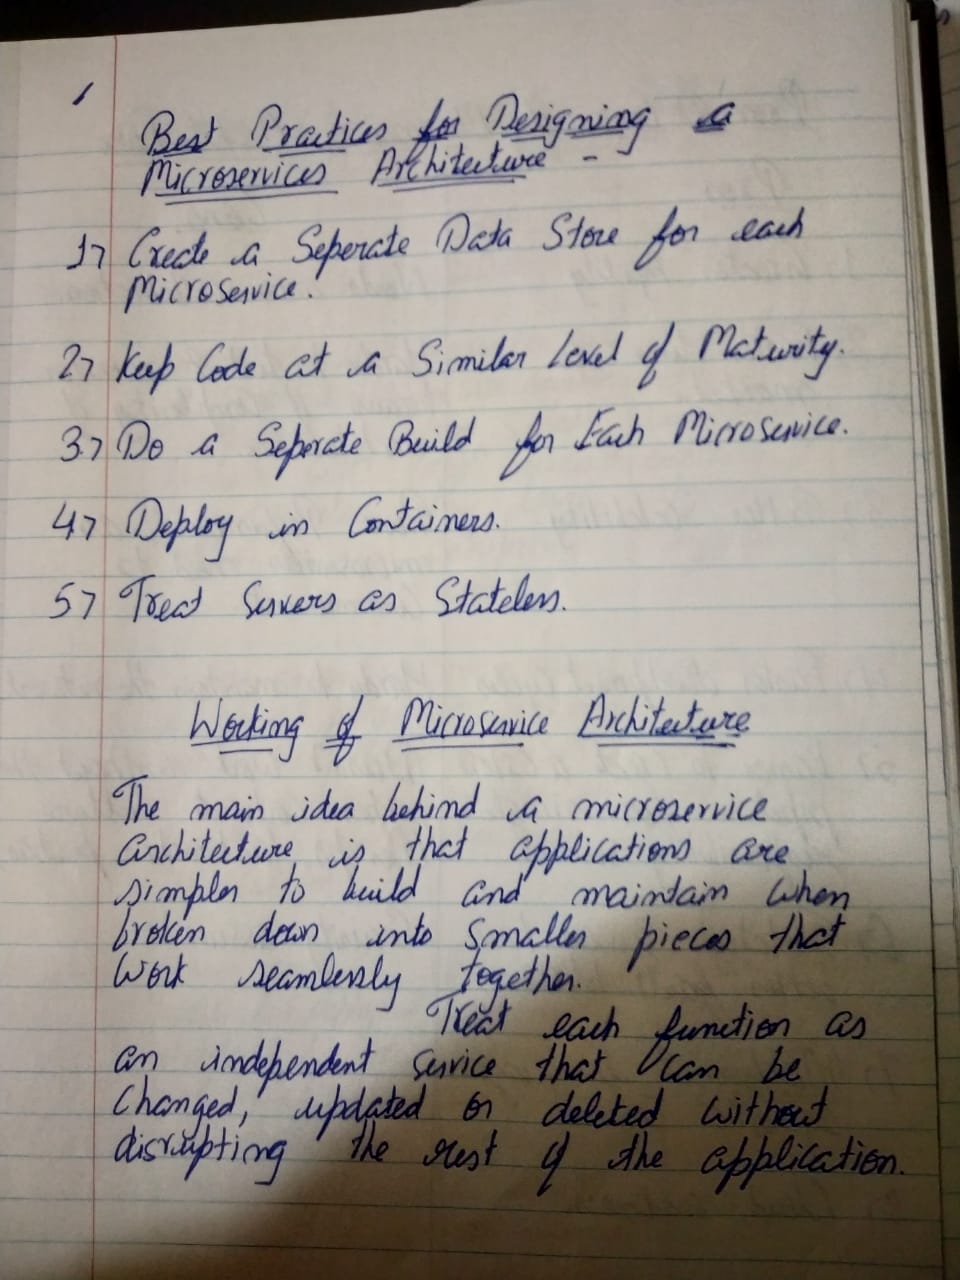 Best Practices for Designing a
Microservices Architecture -
1> Create a Seperate Data Store for each
Microservice.
2> Keep Code at a Similar Level of Maturity.
3.> Do a Seperate Build for Each Microservice.
4> Deploy in Containers.
5> Treat Servers as Stateless.
Working of Microservice Architecture
The main idea behind a microservice
architecture is that applications are
simpler to build and maintain when
broken down into smaller pieces that
work seamlessly together.
Treat each function as
an independent service that can be
changed, updated or deleted without
disrupting the rest of the application.